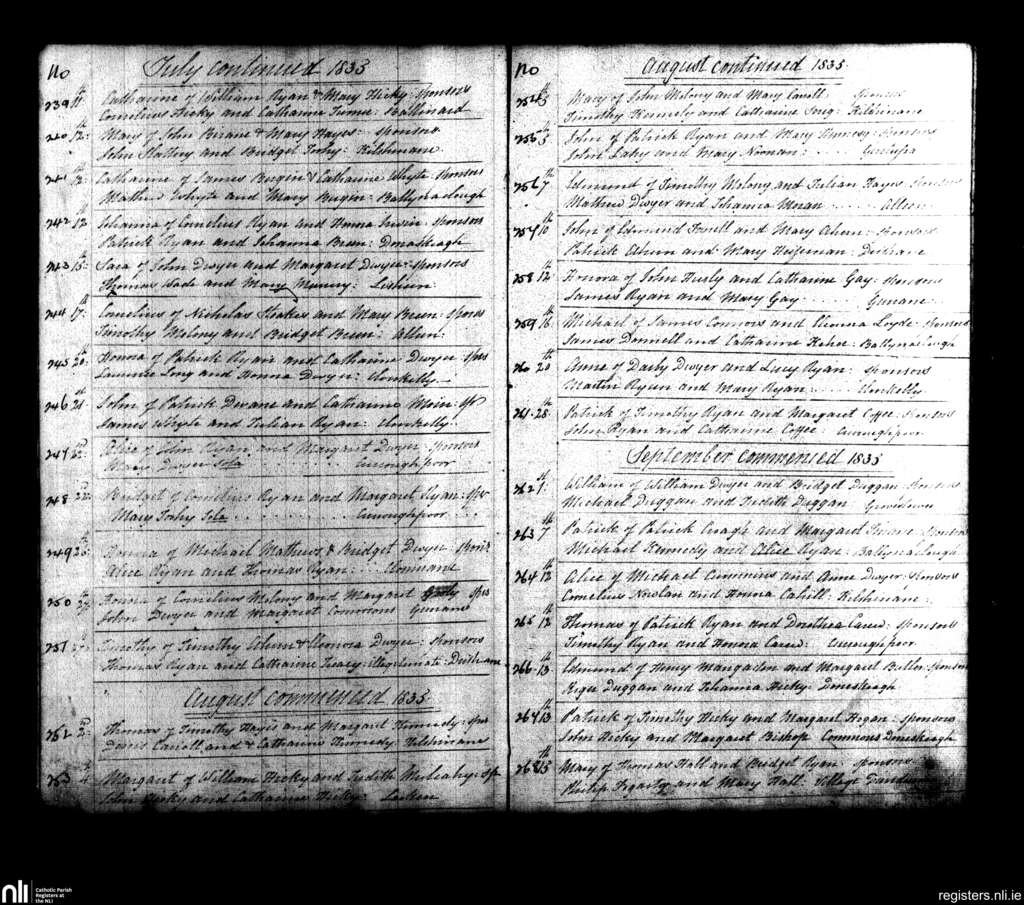 No July continued 1835
239 11th Catharine of William Ryan & Mary Hicky: sponsors
Cornelius Hicky and Catharine Turner: Ballinard
240 12th Mary of John Breane & Mary Hayes: sponsors
John Slattery and Bridget Torhy: Kilshinane
241 12th Catharine of James Burgin & Catharine Whyte sponsors
Mathew Whyte and Mary Burgin: Ballynaclough
242 13 Johanna of Cornelius Ryan and Honora Irwin: sponsors
Patrick Ryan and Johanna Breen: Donaskeagh
243 15th Sara of John Dwyer and Margaret Dwyer: sponsors
Thomas Wade and Mary: Lisheen
244 17th Cornelius of Nicholas and Mary Breen: spons
Timothy Molony and Bridget Breen: Alleen:
245 20th Honora of Patrick Ryan and Catharine Dwyer spes
Laurence Long and Honora Dwyer: Clonkelly
246 21st John of Patrick Dwane and Catharine Moin: sp
James Whyte and Julian Ryan: Clonkelly
247 22nd Alice of John Ryan and Margaret Dwyer: sponsors
Mary Dwyer Sola Curroughpoor
248 22nd Bridget of Cornelius Ryan and Margaret Ryan: spr
Mary Torhy Sola Curroughpoor
249 25th Honora of Michael Mathews & Bridget Dwyer: spons
Alice Ryan and Thomas Ryan: Clonmane
250 27th Honora of Cornelius Molony and Margaret spes
John Dwyer and Margaret Connors Gunane
251 Timothy of Timothy Ahern & Elenora Dwyer: sponsors
Thomas Ryan and Catharine Treacy illegitimate: Deshane
August commenced 1835
252 2nd Thomas of Timothy Hayes and Margaret Kennedy: spes
Denis Carroll and & Catharine Kennedy Kilshinane
253 4th Margaret of William Hicky and Judith Mulcahy: sp
John Hicky and Catharine Hicky: Lacken
No August continued 1835
254 5th Mary of John Molony and Mary Carroll: sponsors
Timothy Kennedy and Catharine Kilshinane
255 5th John of Patrick Ryan and Mary: sponsors
John Lahy and Mary Noonan:
256 7th Edmund of Timothy Molony and Julian Hayes: sponsors
Mathew Dwyer and Johanna Moran Alleen
257 10th John of Edmund Farrell and Mary Ahern: sponsors
Patrick Ahern and Mary Heffernan: Deshane
258 12th Honora of John Hurly and Catharine Gay: sponsors
James Ryan and Mary Gay Gunane
259 16th Michael of James Connors and Eleonora Loyde: sponsors
James Donnell and Catharine Kahoe: Ballynaclough
260 20th Anne of Darby Dwyer and Lucy Ryan: sponsors
Martin Ryan and Mary Ryan Clonkelly
261 28th Patrick of Timothy Ryan and Margaret Coffee: sponsors
John Ryan and Catharine Coffee: Curroughpoor
September commenced 1835
262 1st William of William Dwyer and Bridget Duggan: sponsors
Michael Duggan and Judith Duggan
263 7th Patrick of Patrick and Margaret Dwane: sponsors
Michael Kennedy and Alice Ryan: Ballynaclough
264 12th Alice of Michael Cummins and Anne Dwyer: sponsors
Cornelius Nowlan and Honora Cahill: Kilshinane
265 12th Thomas of Patrick Ryan and Dorothea Carew: sponsors
Timothy Ryan and Honora Carew: Curroughpoor
266 13th Edmund of Henry Mangadon and Margaret Butler: sponsors
Roger Duggan and Johanna Hicky: Donaskeagh
267 13th Patrick of Timothy Hicky and Margaret Hogan: sponsors
John Hicky and Margaret Bishop Commons Donaskeagh
268 13th Mary of Thomas Hall and Bridget Ryan: sponsors
Philip Fogarty and Mary Hall: Village
nli
Catholic Parish
Registers at
the NLI
registers.nli.ie